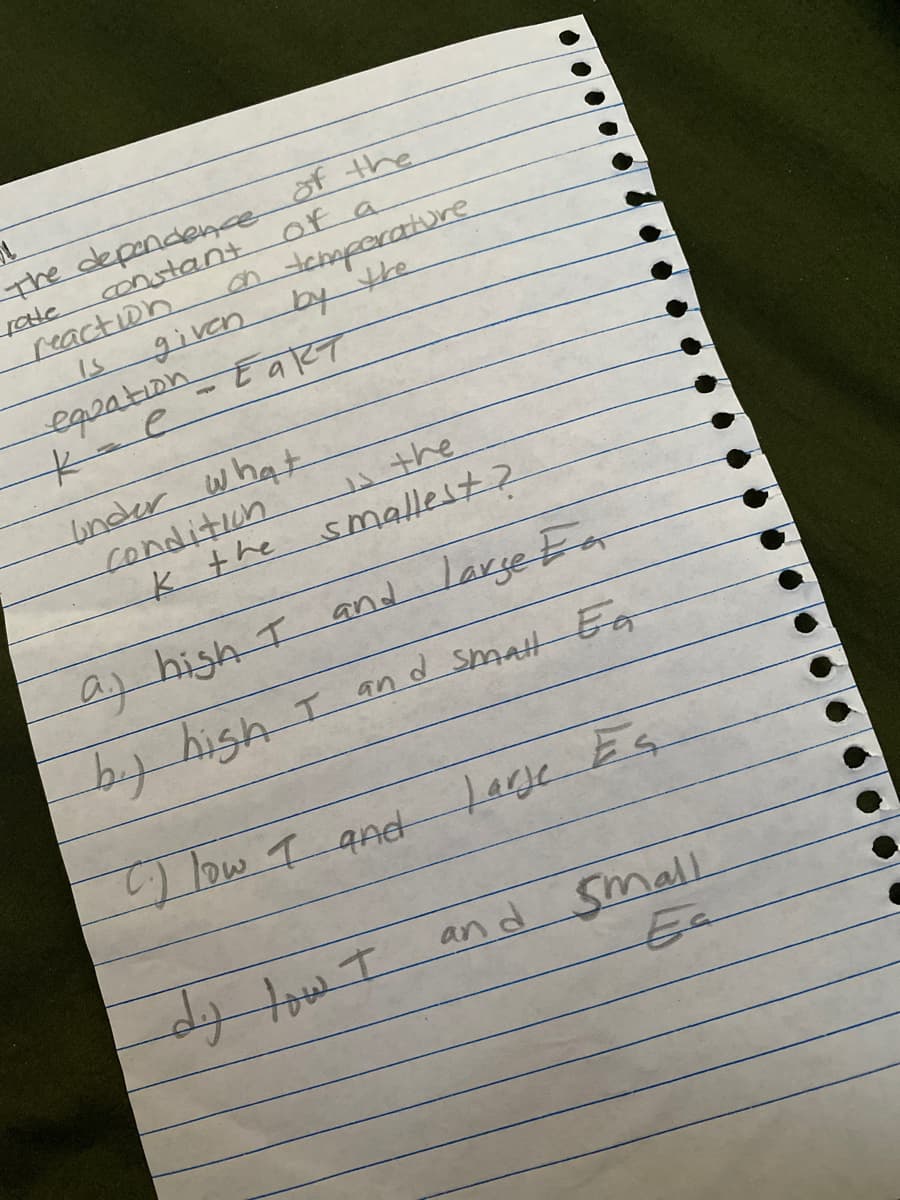 The dependence of the
rate constant of a
reaction on temperature
is given by the
equation
k = e - EakT
Under what
condition is the
k the smallest?
a.) high T and large Ea
b.) high T and small Ea
c.) low T and large Ea
d.) low T and small
Ea